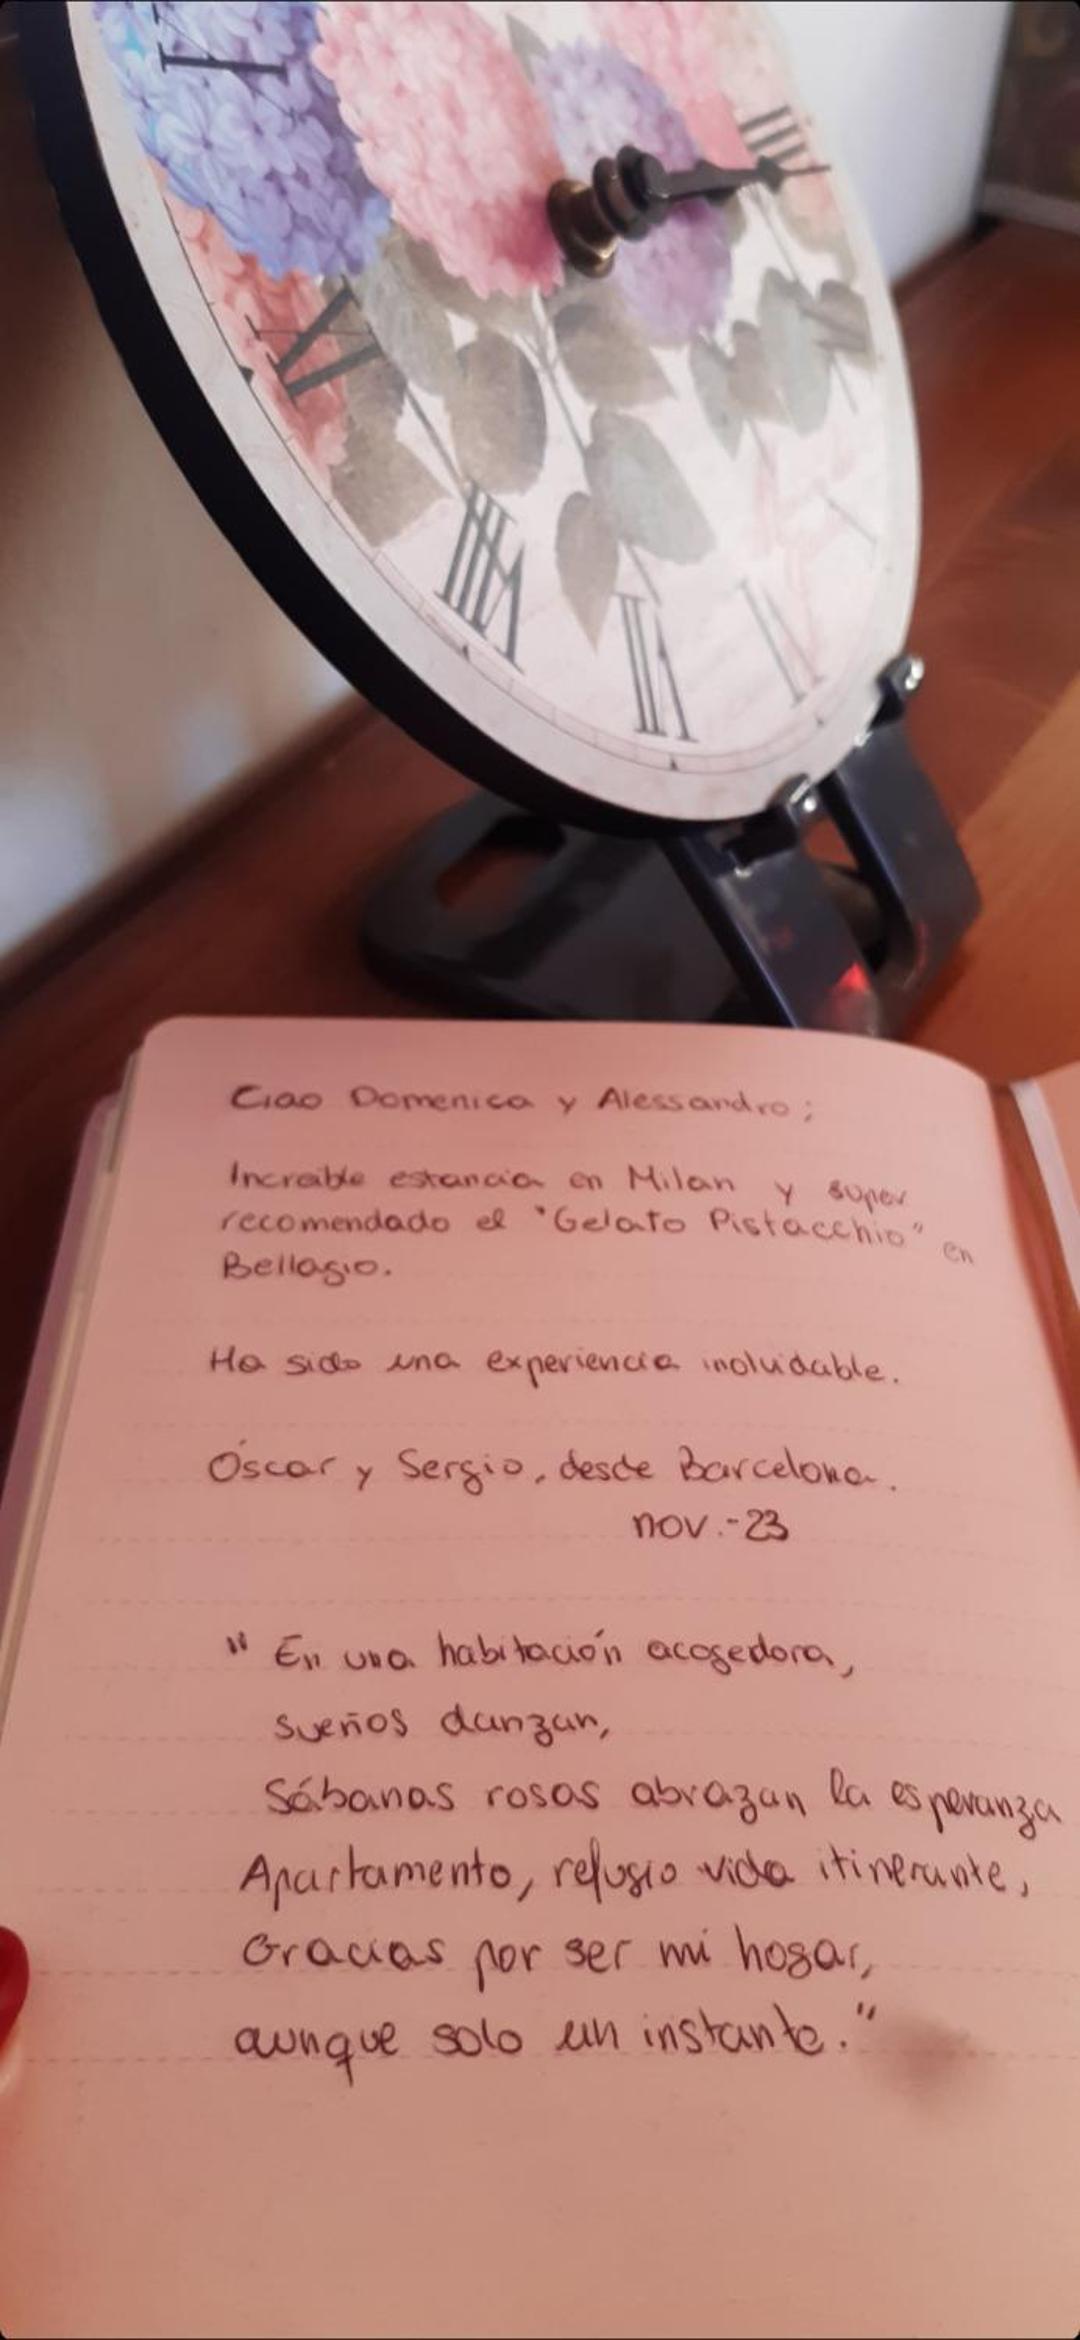 I
III
IX
VIII
VII
VI
Ciao Domenica y Alessandro;
Increíble estancia en Milan y super
recomendado el "Gelato Pistacchio" en
Bellagio.
Ha sido una experiencia inolvidable.
Óscar y Sergio, desde Barcelona.
nov.-23
" En una habitación acogedora,
sueños danzan,
Sábanas rosas abrazan la esperanza
Apartamento, refugio vida itinerante,
Gracias por ser mi hogar,
aunque solo un instante."